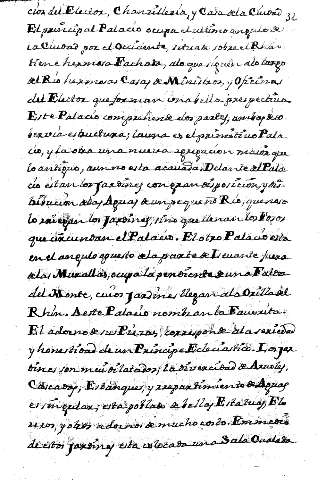 cion del Elector, Chanzilleria, y Casa de la Ciudad 32
El principal Palacio ocupa el ultimo angulo de
la Ciudad por el Occidente, situado sobre el Rhin
tiene hermosa Fachada, a lo que siguen a lo largo
del Rio hermosas Casas de Ministros, y Oficinas
del Elector que forman una bella prespectiva.
Este Palacio comprehende dos partes, ambas de
estructura; la una es el primitivo Pala-
cio, y la otra una nueva agregacion mejor que
lo antiguo, aun no esta acavada. Delante el Pala-
cio estan los Jardines con gran disposicion, y
de las Aguas de un pequeño Rio, que no solo
los Jardines, sino que llenan los Fosos
que circundan el Palacio. El otro Palacio esta
en el angulo opuesto de la parte de Levante fuera
de las Murallas, ocupa la pendiente de una Falda
del Monte, cuios Jardines llegan a la Orilla del
Rhin. A este Palacio nombran la Favorita.
El adorno de sus Piezas, corresponde a la seriedad
y honestidad de un Principe Eclesiastico. Los Jar-
dines son mui dilatados; la diversidad de
Cascadas, Estanques, y repartimiento de Aguas
es singular; esta poblado de bellas Estatuas, Flo-
reros, y otros adornos de mucho costo. En medio
de estos Jardines esta colocada una Sala Ovalada